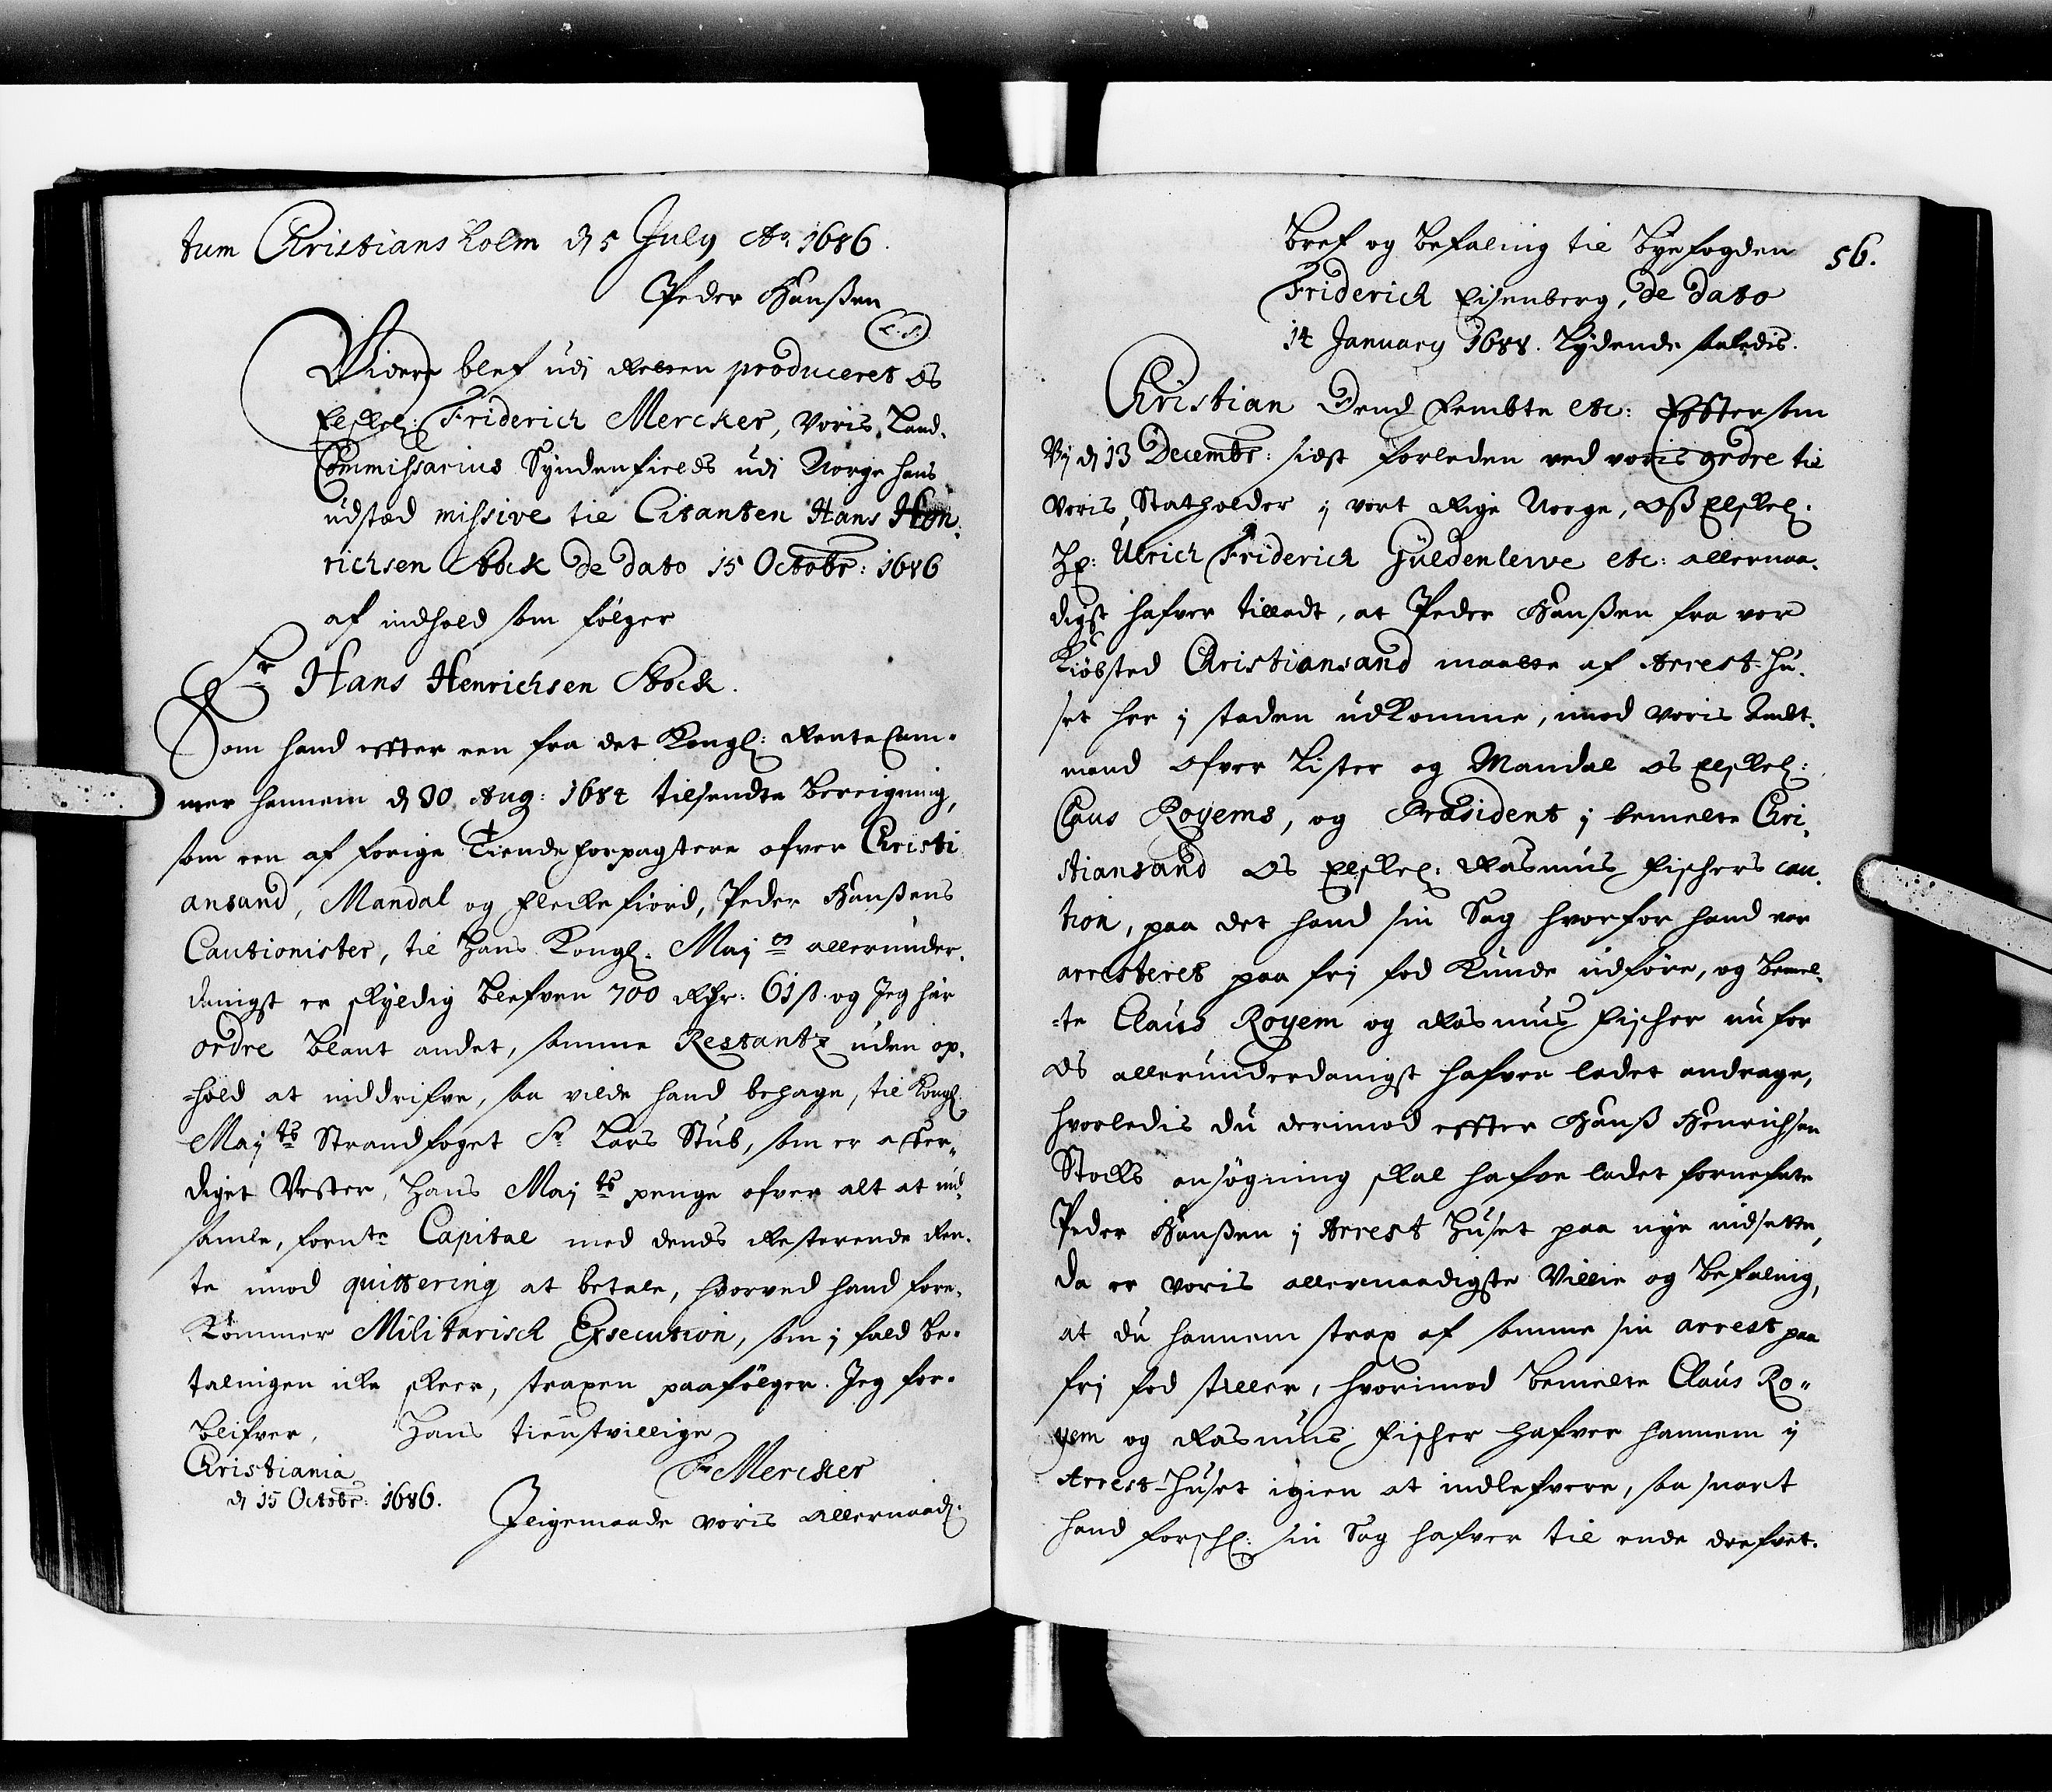 tum Christiansholm d 5 July Ao 1686.
Peder Hanßen
L.S.
Videre blef udj Retten produceret os
Elskel: Friderich Mercker, Voris Land-
Commissarius Syndenfields udj Norge hans
udstæd missive til Citanten Hans Hen-
richsen Stock de dato 15 Octobr: 1686
af indhold som følger
Sr Hans Henrichsen Stock.
Som hand effter een fra det Kongl: Rente Cam-
mer hannem d 30 Aug: 1684 tilsendte bereigning,
som een af forige Tiende forpagtere ofver Christi
ansand, Mandal og Fleckefiord, Peder Hanßens
Cautionister, til Hans Kongl. Maj allerunder-
danigst er skyldig blefven 700 Rdr: 61 ß. og Jeg har
ordre blant andet, samme Restantz uden op-
-hold at inddrifve, saa vilde hand behage, til Kongl.
Majts Strandfoget Sr Lars Stub, som er affer-
diget Vester, Hans Majts penge ofver alt at ind-
samle, fornte Capital med dends Resterende Ren-
te imod quittering at betale, hvorved hand fore-
kommer Militarisch Execution, som j fald be-
talningen icke skeer, straxen paafølger. Jeg for-
blifver, Hans tienstvillige
Christiania
Fr Mercker
d 15 Octobr: 1686.
Jligemaade voris allernaad:
Bref og Befaling til Byefogden
56.
Friderich Eisenberg, de dato
14 January 1688. Lydende saaledis.
Christian Dend Fembte etc: Efftersom
Vj d 13 Decembr: sidst forleden ved voris ordre til
voris Statholder j vort Rige Norge, Oß Elskel.
Hr: Ulrich Friderich Güldenlewe etc: allernaa-
digst hafver tilladt, at Peder Hanßen fra vor
Kiøbsted Christiansand maatte af Arrest-Hu-
set her j staden udkomme, imod voris Ambt-
mand ofver Lister og Mandal os Elskel:
Claus Royems, og Præsident j bemelte Chri-
stiansand Os Elskel: Rasmus Fischers cau-
tion, paa det hand sin Sag hvorfor hand var
arresteret paa frj fod kunde udføre, og bemel-
-te Claus Royem og Rasmus Fischer nu for
os allerunderdanigst hafver ladet andrage,
hvorledis du derimod effter Hanß Henrichsen
Stocks ansøgning skal hafve ladet fornefnte
Peder Hanßen j Arrest Huset paa nye indsette,
da er voris allernaadigste Villie og Befaling,
at du hannem strax af samme sin arrest paa
frj fod stiller, hvorimod bemelte Claus Ro-
yem og Rasmus Fischer hafver hannem ij
Arrest-Huset igien at indlefvere, saa snart
hand forschl: sin Sag hafver til ende drefvet.